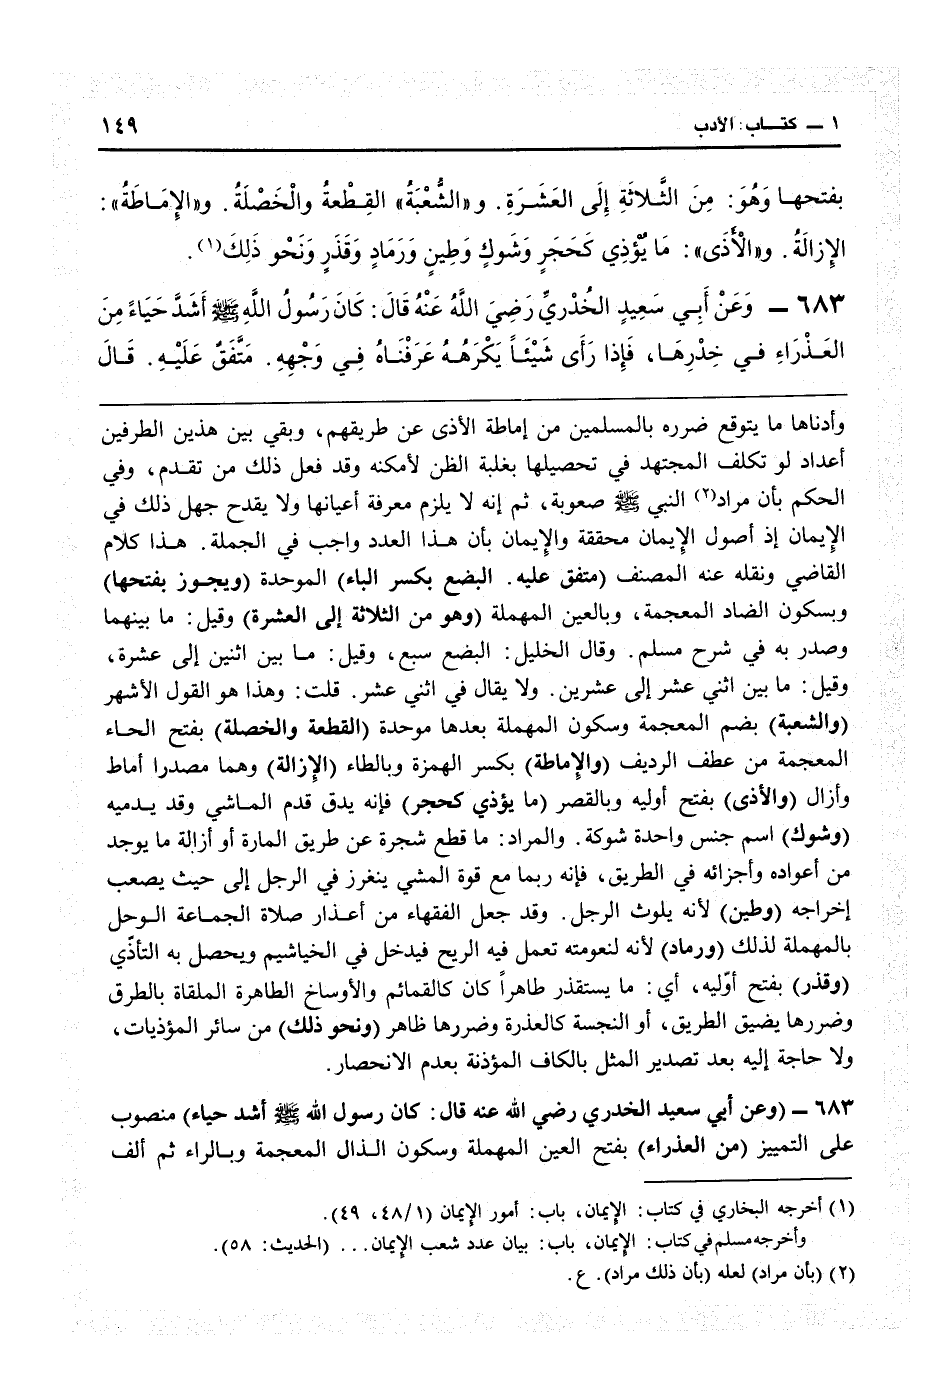 ١ ــ كتـــاب: الأدب ١٤٩
بفتحهـا وَهُوَ: مِنَ الثَّـلاثَةِ إِلَى العَشَـرَةِ. و «الشُّعْبَةُ» القِـطْعةُ والْخَصْلَةُ. و«الإِمَـاطَةُ»:
الإِزالَةُ. و«الْأَذَى»: مَا يُؤْذِي كَحَجَرٍ وَشَوكٍ وَطِينٍ وَرَمَادٍ وَقَذَرٍ وَنَحْوِ ذَلِكَ(١).
٦٨٣ ــ وَعَنْ أَبِـي سَعِيدٍ الخُدْرِيِّ رَضِيَ اللَّهُ عَنْهُ قَالَ: كَانَ رَسُولُ اللَّهِ ﷺ أَشَدَّ حَيَاءً مِنَ
العَـذْرَاءِ فـي خِدْرِهَـا، فَإِذا رَأَى شَيْئَـاً يَكْرَهُـهُ عَرَفْنَـاهُ فِـي وَجْهِهِ. مَتَّفَقٌ عَلَيْـهِ. قَـالَ
وأدناها ما يتوقع ضرره بالمسلمين من إماطة الأذى عن طريقهم، وبقي بين هذين الطرفين
أعداد لو تكلف المجتهد في تحصيلها بغلبة الظن لأمكنه وقد فعل ذلك من تقدم، وفي
الحكم بأن مراد(٢) النبي ﷺ صعوبة، ثم إنه لا يلزم معرفة أعيانها ولا يقدح جهل ذلك في
الإِيمان إذ أصول الإِيمان محققة والإِيمان بأن هـذا العدد واجب في الجملة. هـذا كلام
القاضي ونقله عنه المصنف (متفق عليه. البضع بكسر الباء) الموحدة (ويجـوز بفتحها)
وبسكون الضاد المعجمة، وبالعين المهملة (وهو من الثلاثة إلى العشرة) وقيل: ما بينهما
وصدر به في شرح مسلم. وقال الخليل: البضع سبع، وقيل: مـا بين اثنين إلى عشرة،
وقيل: ما بين اثني عشر إلى عشرين. ولا يقال في اثني عشر. قلت: وهذا هو القول الأشهر
(والشعبة) بضم المعجمة وسكون المهملة بعدها موحدة (القطعة والخصلة) بفتح الحـاء
المعجمة من عطف الرديف (والإِماطة) بكسر الهمزة وبالطاء (الإِزالة) وهما مصدرا أماط
وأزال (والأذى) بفتح أوليه وبالقصر (ما يؤذي كحجر) فإنه يدق قدم المـاشي وقد يـدميه
(وشوك) اسم جنس واحدة شوكة. والمراد: ما قطع شجرة عن طريق المارة أو أزالة ما يوجد
من أعواده وأجزائه في الطريق، فإنه ربما مع قوة المشي ينغرز في الرجل إلى حيث يصعب
إخراجه (وطين) لأنه يلوث الرجل. وقد جعل الفقهاء من أعـذار صلاة الجمـاعة الـوحل
بالمهملة لذلك (ورماد) لأنه لنعومته تعمل فيه الريح فيدخل في الخياشيم ويحصل به التأذّي
(وقذر) بفتح أوّليه، أي: ما يستقذر طاهراً كان كالقمائم والأوساخ الطاهرة الملقاة بالطرق
وضررها يضيق الطريق، أو النجسة كالعذرة وضررها ظاهر (ونحو ذلك) من سائر المؤذيات،
ولا حاجة إليه بعد تصدير المثل بالكاف المؤذنة بعدم الانحصار.
٦٨٣ ــ (وعن أبي سعيد الخدري رضي الله عنه قال: كان رسول الله ﷺ أشد حياء) منصوب
على التمييز (من العذراء) بفتح العين المهملة وسكون الـذال المعجمة وبـالراء ثم ألف
(١) أخرجه البخاري في كتاب: الإِيمان، باب: أمور الإِيمان (٤٨/١، ٤٩).
وأخرجه مسلم في كتاب: الإِيمان، باب: بيان عدد شعب الإِيمان... (الحديث: ٥٨).
(٢) (بأن مراد) لعله (بأن ذلك مراد). ع.